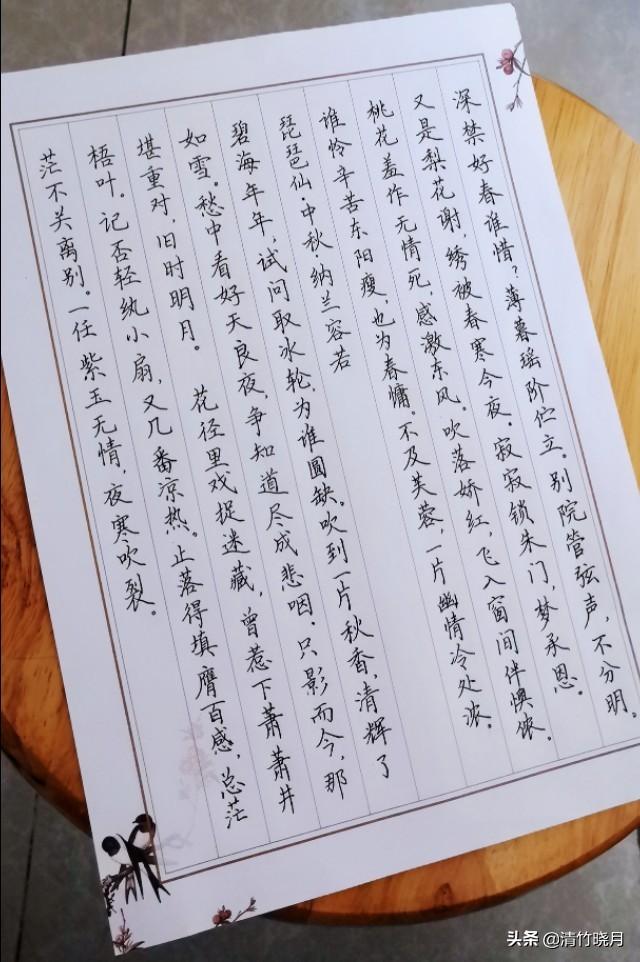 深禁好春谁惜？薄暮瑶阶伫立。别院管弦声，不分明。
又是梨花谢，绣被春寒今夜。寂寂锁朱门，梦承恩。
桃花羞作无情死，感激东风。吹落娇红，飞入窗间伴懊侬。
谁怜辛苦东阳瘦，也为春慵。不及芙蓉，一片幽情冷处浓。
琵琶仙·中秋·纳兰容若
碧海年年，试问取冰轮，为谁圆缺。吹到一片秋香，清辉了
如雪。愁中看好天良夜，争知道尽成悲咽。只影而今，那
堪重对，旧时明月。 花径里戏捉迷藏，曾惹下萧萧井
梧叶。记否轻纨小扇，又几番凉热。止落得填膺百感，总茫
茫不关离别。一任紫玉无情，夜寒吹裂。
头条@清竹晓月